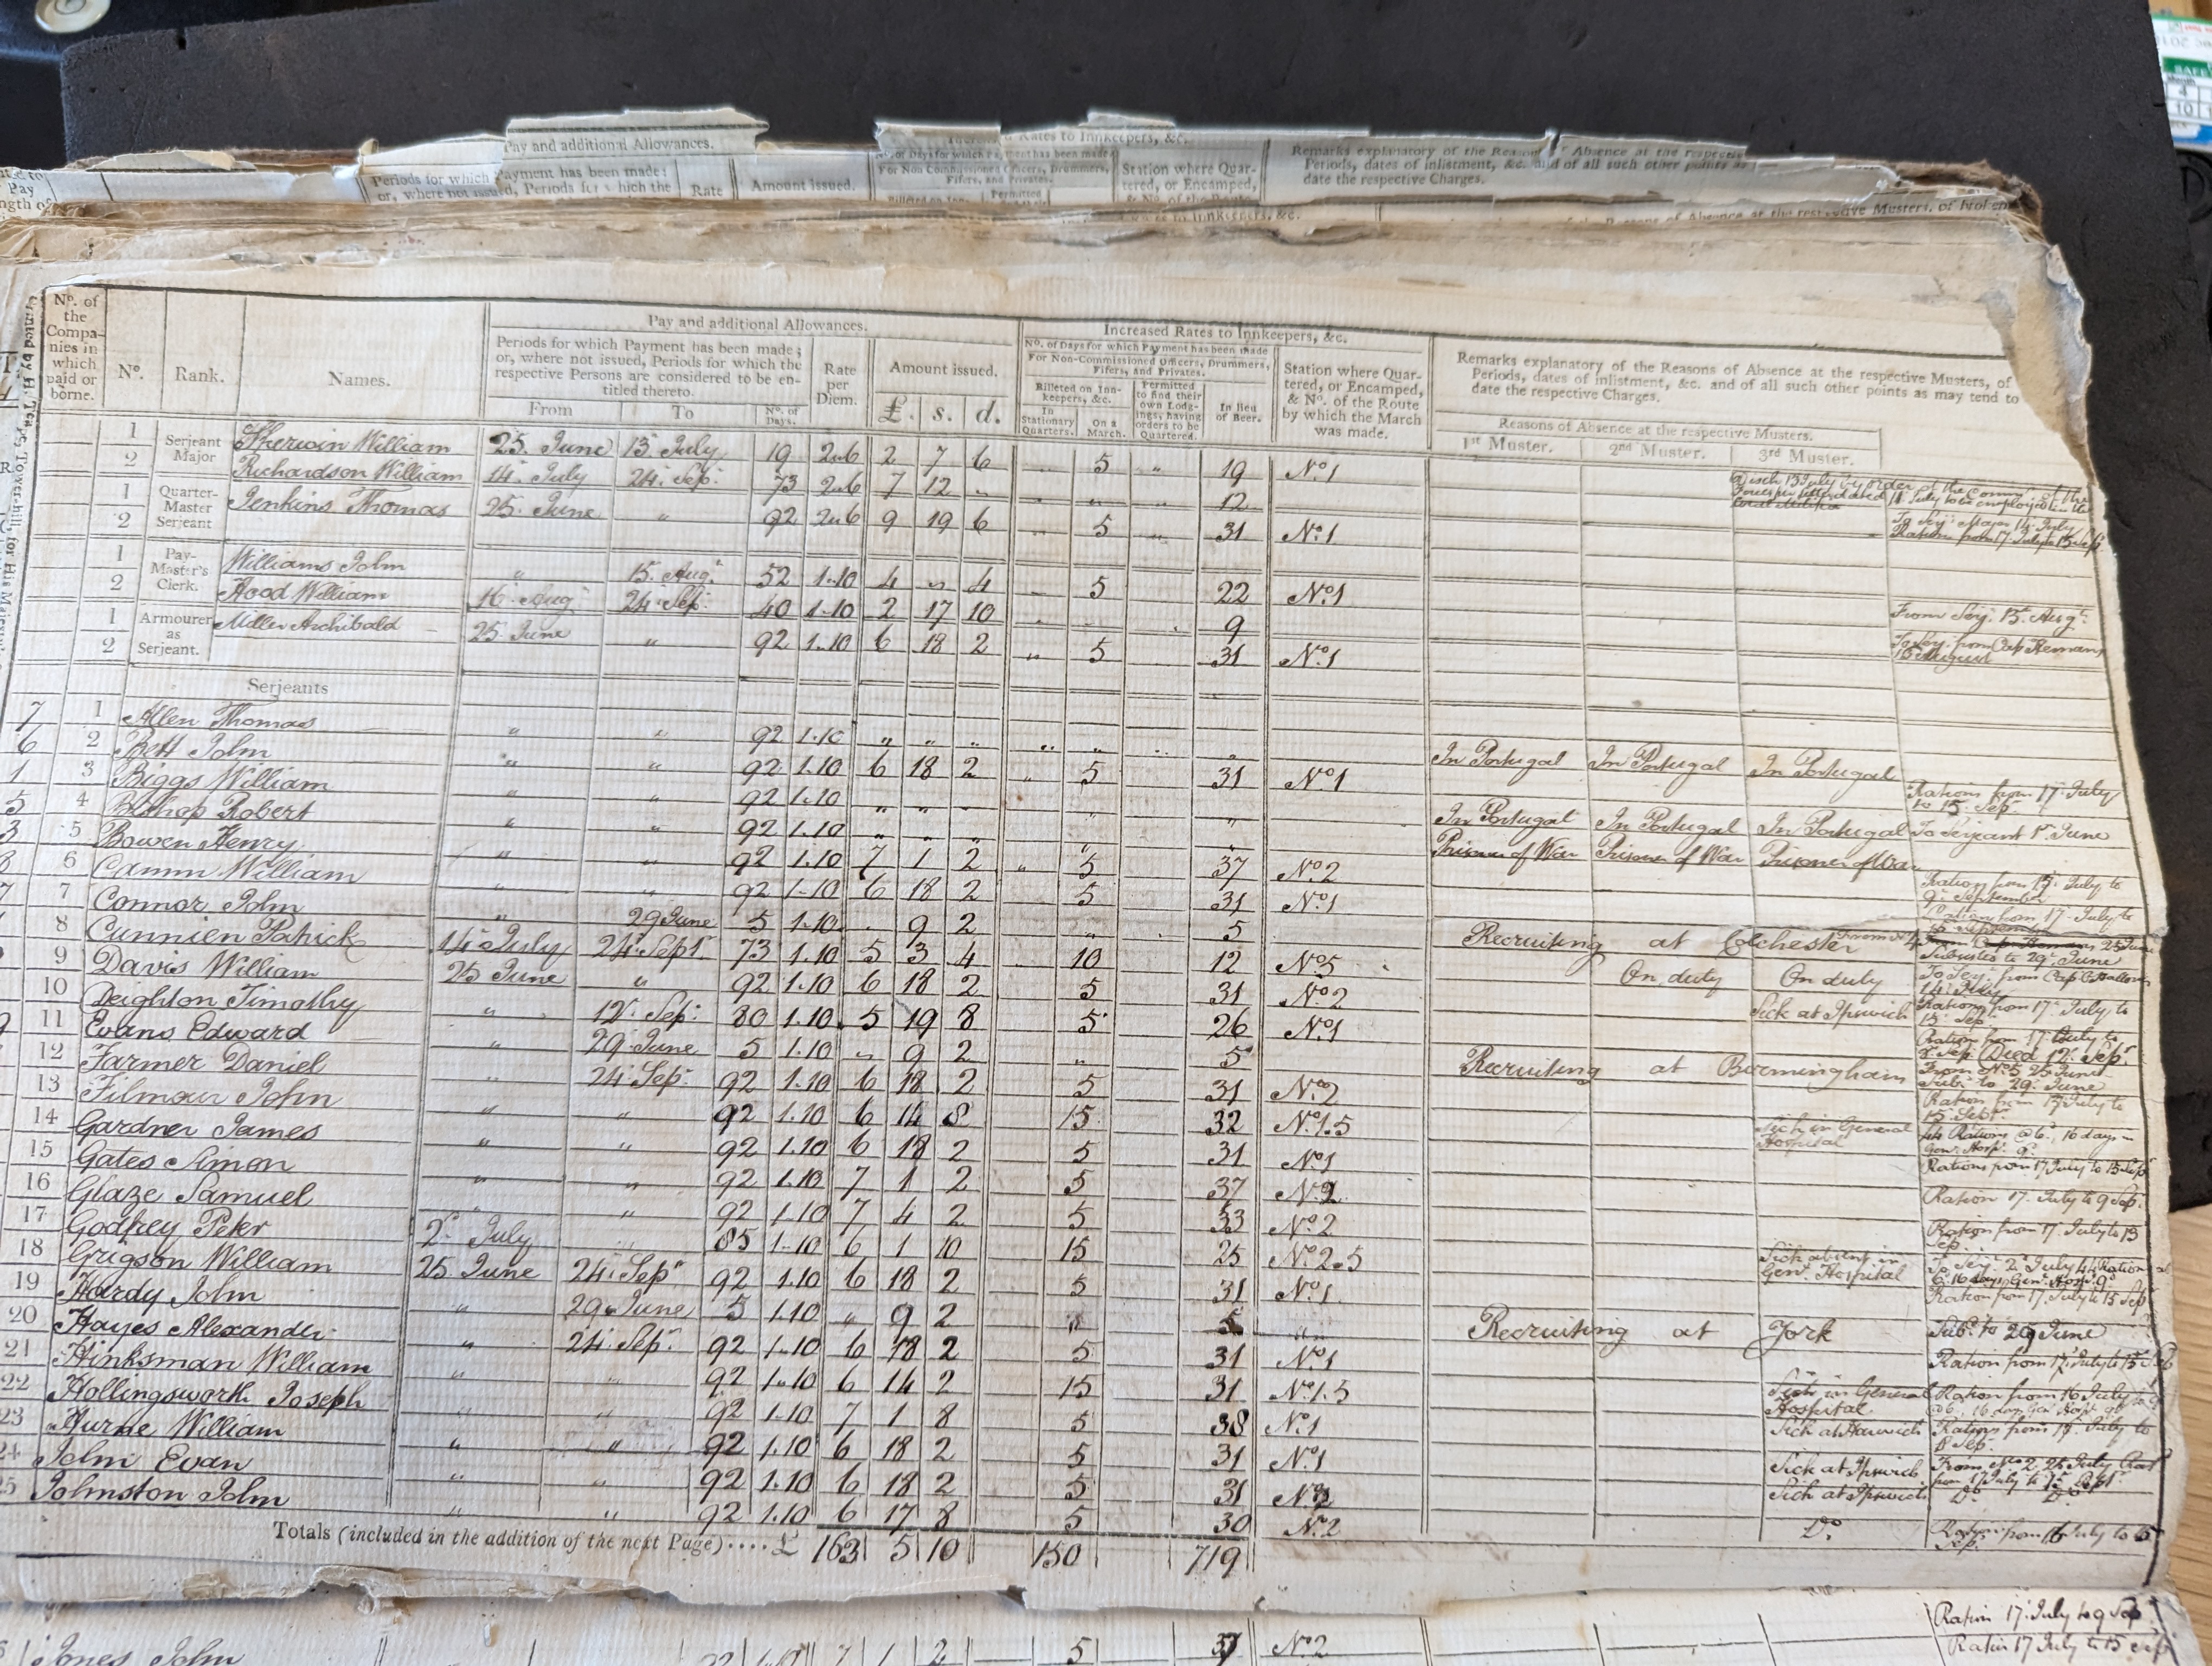 Pay and additional Allowances.
Rates to Innkeepers, &c.
Periods for which Payment has been made; or, where not issued, Periods for which the
Rate
Amount issued.
No. of Days for which Payment has been made
For Non Commissioned Officers, Drummers, Fifers, and Privates.
Station where Quartered, or Encamped, & No. of the Route
Remarks explanatory of the Reasons of Absence at the respective
Periods, dates of inlistment, &c. and of all such other points as
date the respective Charges.
No. of the Companies in which paid or borne.
No.
Rank.
Names.
Pay and additional Allowances.
Periods for which Payment has been made; or, where not issued, Periods for which the respective Persons are considered to be entitled thereto.
From
To
No. of Days.
Rate per Diem.
Amount issued.
£. s. d.
Increased Rates to Innkeepers, &c.
No. of Days for which Payment has been made For Non-Commissioned Officers, Drummers, Fifers, and Privates.
Billeted on Innkeepers, &c.
In Stationary Quarters.
On a March.
Permitted to find their own Lodgings, having orders to be Quartered.
In lieu of Beer.
Station where Quartered, or Encamped, & No. of the Route by which the March was made.
Remarks explanatory of the Reasons of Absence at the respective Musters, of
Periods, dates of inlistment, &c. and of all such other points as may tend to
date the respective Charges.
Reasons of Absence at the respective Musters.
1st Muster.
2nd Muster.
3rd Muster.
Serjeant Major
1 Sherwin William 25 June 13 July 19 2.6 2 7 6 5 19 No 1
2 Richardson William 14 July 24 Sep. 73 2.6 7 12 " 12
Quarter-Master Serjeant
1 Jenkins Thomas 25 June " 92 2.6 9 19 6 5 31 No 1
2
To Serj. Major 14 July
Ration from 17 July to 15 Sep
Pay-Master's Clerk.
1 Williams John " 15 Aug. 52 1.10 4 " 4 5 22 No 1
2 Hood William 16 Aug 24 Sep. 40 1.10 2 17 10 9
From Serj. 15 Augt.
Armourer as Serjeant.
1 Miller Archibald 25 June " 92 1.10 6 18 2 " 5 31 No 1
2
Serjeants
7 1 Allen Thomas " " 92 1.10 " " " In Portugal In Portugal In Portugal
6 2 Bett John " " 92 1.10 6 18 2 " 5 31 No 1 Rations from 17 July to 15 Sep.
1 3 Biggs William " " 92 1.10 " " " In Portugal In Portugal In Portugal To Serjeant 1st June
5 4 Bishop Robert " " 92 1.10 " " " Prisoner of War Prisoner of War Prisoner of War
3 5 Bowen Henry " " 92 1.10 7 1 2 " 5 37 No 2
6 Camm William " " 92 1.10 6 18 2 5 31 No 1
7 Connor John " 29 June 5 1.10 9 2 " 5 Recruiting at Colchester
8 Cunnien Patrick 14 July 24 Sept. 73 1.10 5 3 4 10 12 No 5 On duty On duty
9 Davis William 25 June " 92 1.10 6 18 2 5 31 No 2 Sick at Ipswich
10 Deighton Timothy " 12 Sep. 80 1.10 5 19 8 5 26 No 1 Died 12 Sep.
11 Evans Edward " 29 June 5 1.10 " 9 2 " 5 Recruiting at Birmingham From No 5 25 June Subs. to 29 June
12 Farmer Daniel " 24 Sep. 92 1.10 6 18 2 5 31 No 2 Ration from 17 July to 15 Sept.
13 Filmour John " " 92 1.10 6 14 8 15 32 No 1.5 Sick in General Hospital
14 Gardner James " " 92 1.10 6 18 2 5 31 No 1 Rations from 17 July to 15 Sep
15 Gates Simon " " 92 1.10 7 1 2 5 37 No 2 Ration 17 July to 9 Sep.
16 Glaze Samuel " " 92 1.10 7 4 2 5 33 No 2 Ration from 17 July to 13 Sep.
17 Godfrey Peter 2 July " 85 1.10 6 1 10 15 25 No 2.5 Sick absent in Genl. Hospital
18 Grigson William 25 June 24 Sep 92 1.10 6 18 2 5 31 No 1 Ration from 17 July to 15 Sep
19 Hardy John " 29 June 5 1.10 " 9 2 5 Recruiting at York Subs. to 29 June
20 Hayes Alexander " 24 Sep. 92 1.10 6 18 2 5 31 No 1 Ration from 17 July to 15
21 Hinksman William " " 92 1.10 6 14 2 15 31 No 1.5 Sick in General Hospital Ration from 16 July to 9
22 Hollingsworth Joseph " " 92 1.10 7 1 8 5 38 No 1 Sick at Harwich
23 Hurne William " " 92 1.10 6 18 2 5 31 No 1 Sick at Ipswich
24 John Evan " " 92 1.10 6 18 2 5 31 No 2 Sick at Ipswich Do Do
25 Johnston John " " 92 1.10 6 17 8 5 30 No 2 Do Ration from 16 July to 15 Sep.
Totals (included in the addition of the next Page) .... £ 163 5 10 150 719
Jones John 92 1.10 7 1 2 5 37 No 2 Ration 17 July to 9 Sep
Ration 17 July to 15 Sep